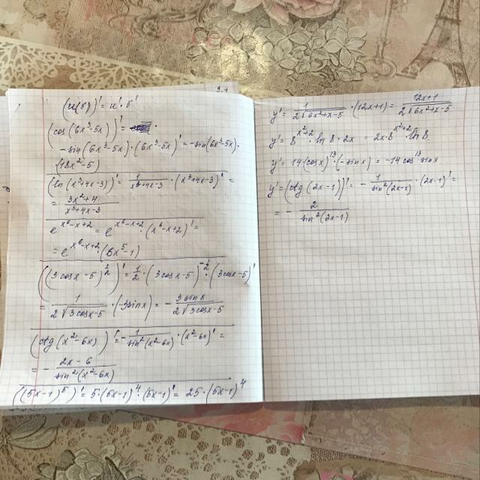 (u(v))' = u' · v'
(cos(6x³-5x))' =
-sin(6x³-5x)·(6x³-5x)' = -sin(6x³-5x)·
·(18x²-5)
(ln(x³+4x-3))' = 1/(x³+4x-3) · (x³+4x-3)' =
= (3x²+4)/(x³+4x-3)
e^(x⁶-x+2) = e^(x⁶-x+2) (x⁶-x+2)' =
= e^(x⁶-x+2) (6x⁵-1)
((3cosx-5)^(1/2))' = 1/2 · (3cosx-5)^(-1/2) · (3cosx-5)'
= 1/(2√(3cosx-5)) · (-3sinx) = - 3sinx/(2√(3cosx-5))
(ctg(x²-6x))' = - 1/sin²(x²-6x) · (x²-6x)' =
= - (2x-6)/sin²(x²-6x)
((5x-1)⁵)' = 5·(5x-1)⁴·(5x-1)' = 25·(5x-1)⁴
y' = 1/(2√(6x²+x-5)) · (12x+1) = (12x+1)/(2√(6x²+x-5))
y' = 8^(x²+2) · ln8 · 2x = 2x·8^(x²+2) ln8
y' = 14(cosx)¹³·(-sinx) = -14cos¹³x sinx
y' = (ctg(2x-1))' = - 1/sin²(2x-1) · (2x-1)' =
= - 2/sin²(2x-1)